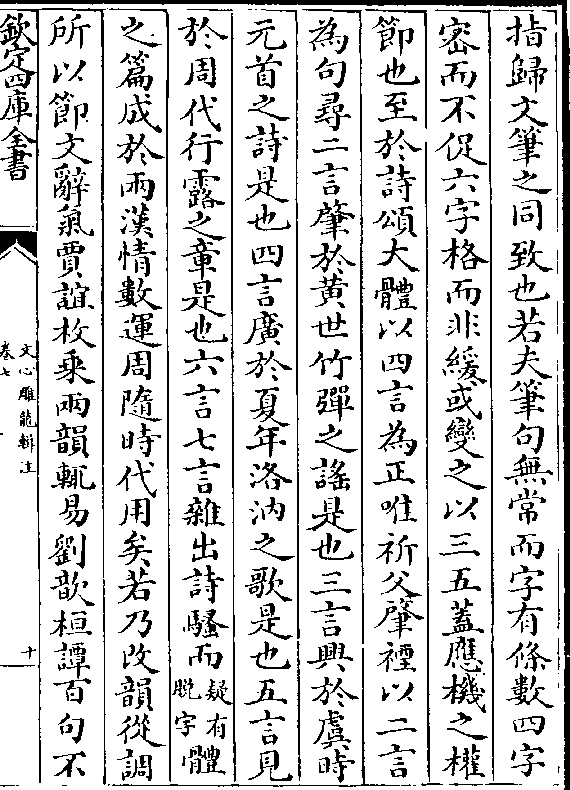 指歸文筆之同致也若夫筆句無常而字有條數四字
密而不促六字格而非緩或變之以三五蓋應機之權
節也至於詩頌大體以四言為正唯祈父肇禋以二言
為句尋二言肇於黃世竹彈之謠是也三言興於虞時
元首之詩是也四言廣於夏年洛汭之歌是也五言見
於周代行露之章是也六言七言雜出詩騷而疑有脫字體
之篇成於兩漢情數運周隨時代用矣若乃改韻從調
所以節文辭氣賈誼枚乘兩韻輒易劉歆桓譚百句不
欽定四庫全書
文心雕龍輯注
卷七
十